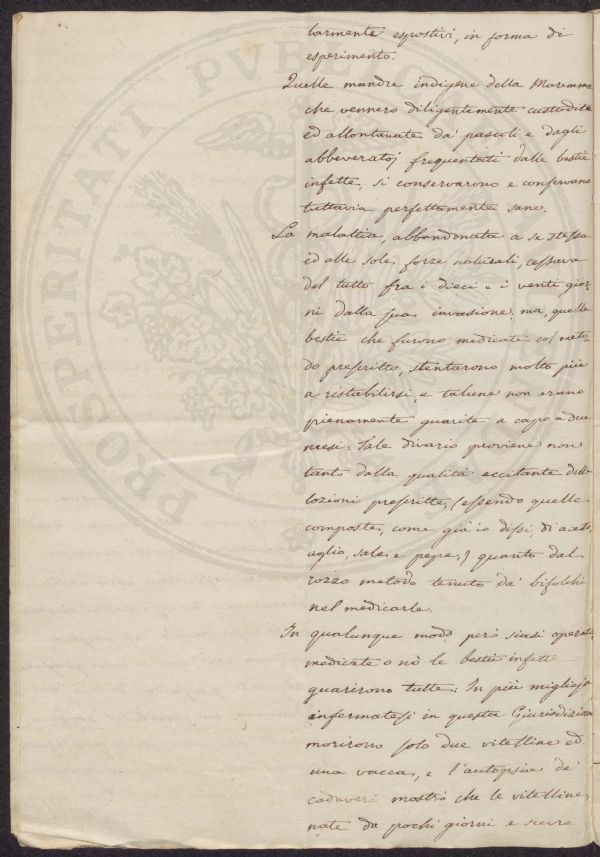 larmente espostivi, in forma di
esperimento.
Quelle mandre indigene della Maremma
che vennero diligentemente custodite
ed allontanate da' pascoli e dagli
abbeveratoj frequentati dalle bestie
infette, si conservarono e conservano
tuttavia perfettamente sane.
La malattia, abbandonata a se stessa
ed alle sole forze naturali, cessava
del tutto fra i dieci e i venti gior-
ni dalla sua invasione, ma quelle
bestie che furono medicate col meto-
do prescritto, stentarono molto più
a ristabilirsi, e talune non erano
pienamente guarite a capo a due
mesi: Tale divario proviene non
tanto dalla qualità eccitante delle
lozioni prescritte, (essendo quelle
composte, come già io dissi, di aceto,
aglio, sale e pepe,) quanto dal
rozzo metodo tenuto da' bifolchi
nel medicarle.
In qualunque modo però siasi operato,
medicate o nò le bestie infette
guarirono tutte: In più migliaja
infermatesi in questa Giurisdizione
morirono solo due vitelline ed
una vacca, e l'autopsia de'
cadaveri mostrò che le vitelline,
nate da pochi giorni e scevre
PROSPERITATI PVBLICAE